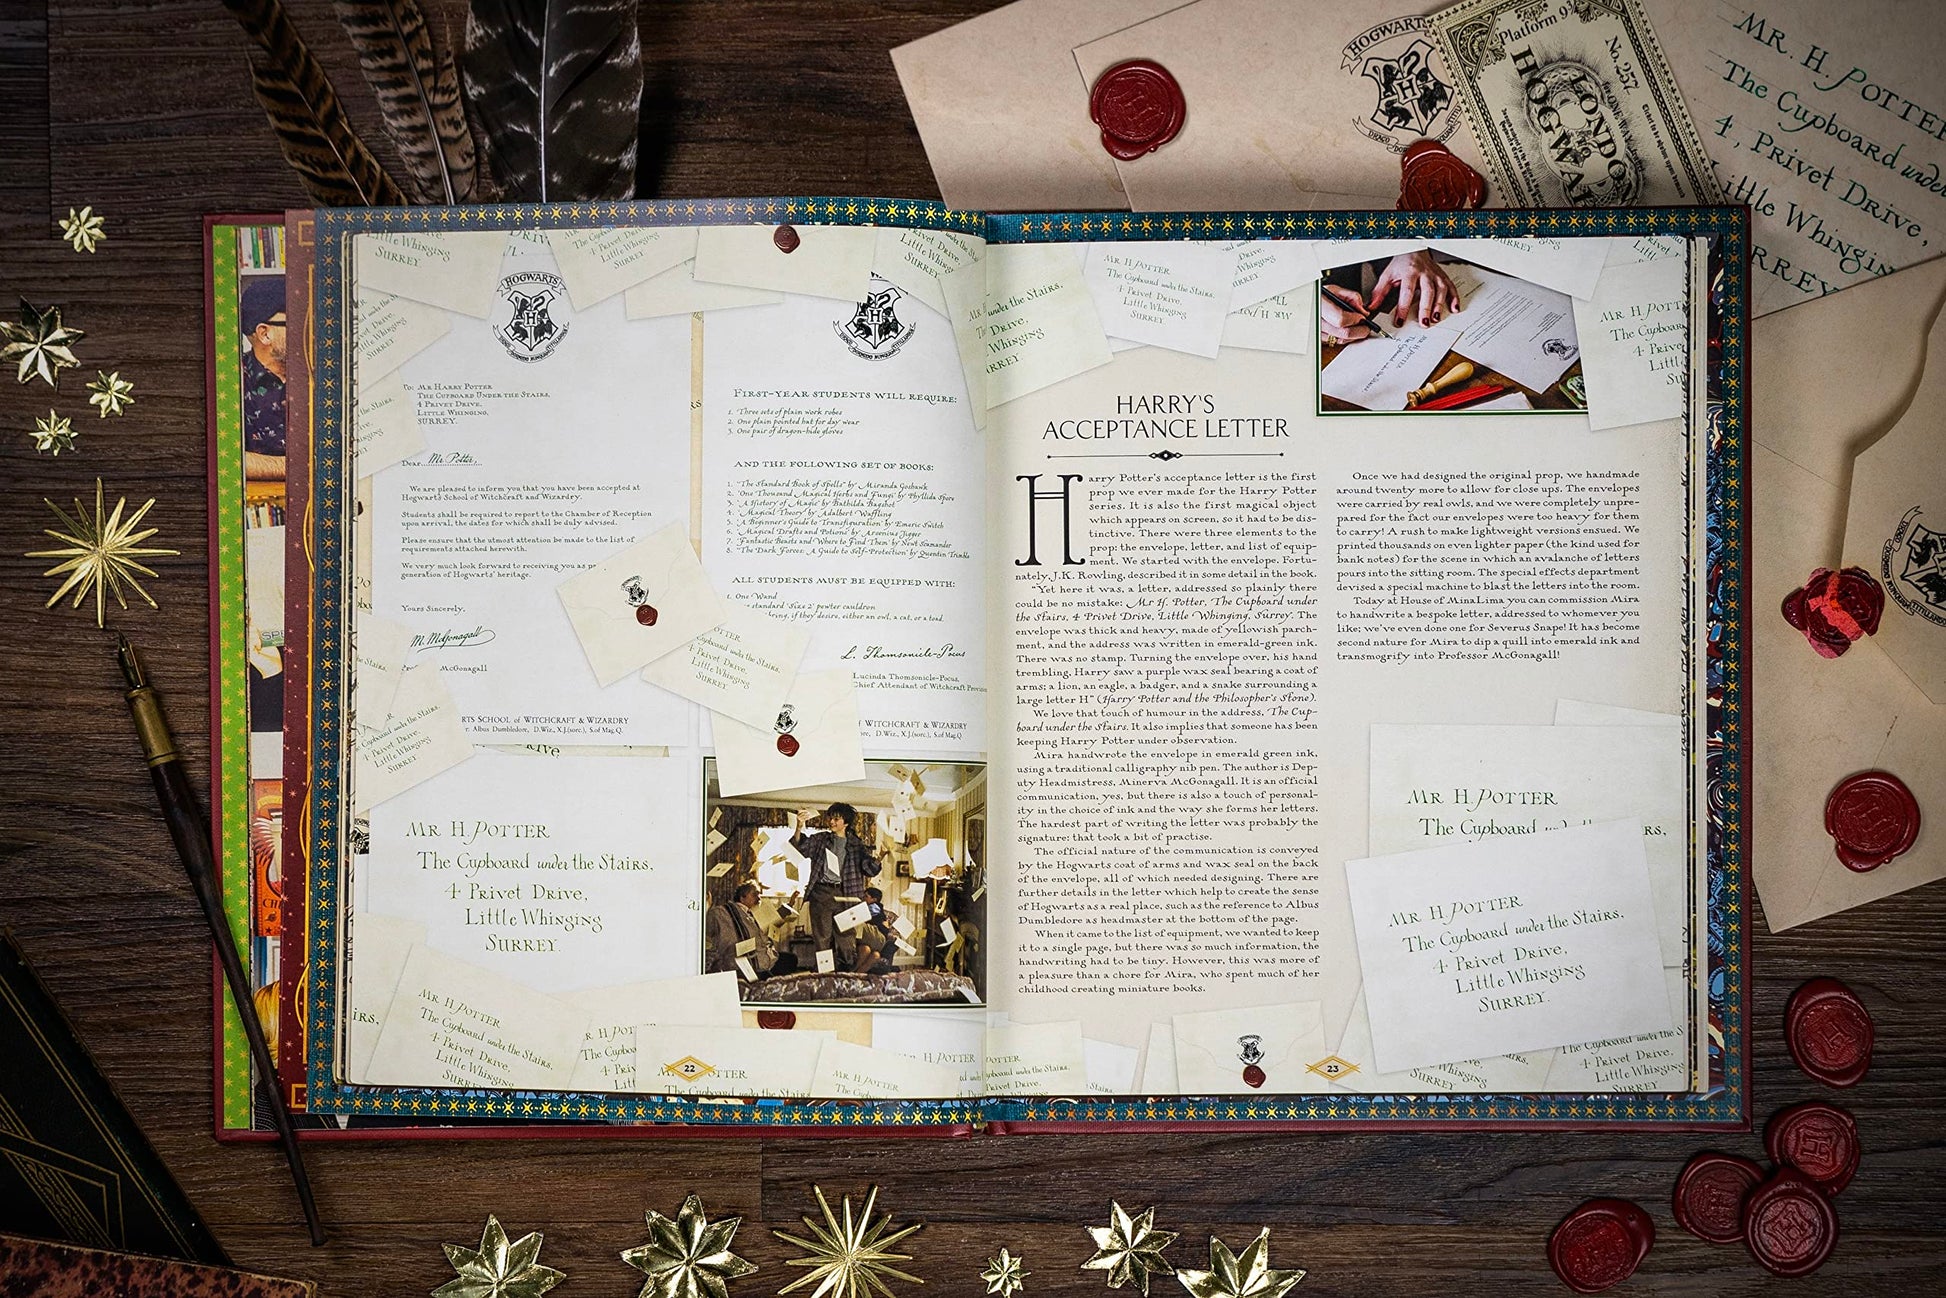 HOGWARTS
To: Mr Harry Potter
The Cupboard Under the Stairs,
4 Privet Drive,
Little Whinging,
Surrey.
Dear Mr Potter,
We are pleased to inform you that you have been accepted at
Hogwarts School of Witchcraft and Wizardry.
Students shall be required to report to the Chamber of Reception
upon arrival, the dates for which shall be duly advised.
Please ensure that the utmost attention be made to the list of
requirements attached herewith.
We very much look forward to receiving you as
generation of Hogwarts' heritage.
Yours Sincerely,
M. McGonagall
McGonagall
SCHOOL of WITCHCRAFT & WIZARDRY
Albus Dumbledore, D.Wiz., X.J.(sorc.), S.of Mag.Q.
FIRST-YEAR STUDENTS WILL REQUIRE:
1. Three sets of plain work robes
2. One plain pointed hat for day wear
3. One pair of dragon-hide gloves
AND THE FOLLOWING SET OF BOOKS:
1. "The Standard Book of Spells" by Miranda Goshawk
2. 'One Thousand Magical Herbs and Fungi' by Phyllida Spore
3. 'A History of Magic' by Bathilda Bagshot
4. 'Magical Theory' by Adalbert Waffling
5. 'A Beginner's Guide to Transfiguration' by Emeric Switch
6. 'Magical Drafts and Potions' by Arsenius Jigger
7. 'Fantastic Beasts and Where to Find Them' by Newt Scamander
8. "The Dark Forces: A Guide to Self-Protection' by Quentin Trimble
ALL STUDENTS MUST BE EQUIPPED WITH:
1. One Wand
standard 'Size 2' pewter cauldron
bring, if they desire, either an owl, a cat, or a toad.
L. Thomsonicle-Pocus
Lucinda Thomsonicle-Pocus,
Chief Attendant of Witchcraft
of WITCHCRAFT & WIZARDRY
Dumbledore, D.Wiz., X.J.(sorc.), S.of Mag.Q.
MR H. POTTER
The Cupboard under the Stairs,
4 Privet Drive,
Little Whinging
SURREY.
MR H. POTTER
The Cupboard under the Stairs,
4 Privet Drive,
Little Whinging
22
HARRY'S
ACCEPTANCE LETTER
Harry Potter's acceptance letter is the first
prop we ever made for the Harry Potter
series. It is also the first magical object
which appears on screen, so it had to be dis-
tinctive. There were three elements to the
prop: the envelope, letter, and list of equip-
ment. We started with the envelope. Fortu-
nately, J.K. Rowling, described it in some detail in the book.
"Yet here it was, a letter, addressed so plainly there
could be no mistake: Mr H. Potter, The Cupboard under
the Stairs, 4 Privet Drive, Little Whinging, Surrey. The
envelope was thick and heavy, made of yellowish parch-
ment, and the address was written in emerald-green ink.
There was no stamp. Turning the envelope over, his hand
trembling, Harry saw a purple wax seal bearing a coat of
arms; a lion, an eagle, a badger, and a snake surrounding a
large letter H" (Harry Potter and the Philosopher's Stone).
We love that touch of humour in the address, The Cup-
board under the Stairs. It also implies that someone has been
keeping Harry Potter under observation.
Mira handwrote the envelope in emerald green ink,
using a traditional calligraphy nib pen. The author is Dep-
uty Headmistress, Minerva McGonagall. It is an official
communication, yes, but there is also a touch of personal-
ity in the choice of ink and the way she forms her letters.
The hardest part of writing the letter was probably the
signature: that took a bit of practise.
The official nature of the communication is conveyed
by the Hogwarts coat of arms and wax seal on the back
of the envelope, all of which needed designing. There are
further details in the letter which help to create the sense
of Hogwarts as a real place, such as the reference to Albus
Dumbledore as headmaster at the bottom of the page.
When it came to the list of equipment, we wanted to keep
it to a single page, but there was so much information, the
handwriting had to be tiny. However, this was more of
a pleasure than a chore for Mira, who spent much of her
childhood creating miniature books.
Once we had designed the original prop, we handmade
around twenty more to allow for close ups. The envelopes
were carried by real owls, and we were completely unpre-
pared for the fact our envelopes were too heavy for them
to carry! A rush to make lightweight versions ensued. We
printed thousands on even lighter paper (the kind used for
bank notes) for the scene in which an avalanche of letters
pours into the sitting room. The special effects department
devised a special machine to blast the letters into the room.
Today at House of MinaLima, you can commission Mira
to handwrite a bespoke letter, addressed to whomever you
like; we've even done one for Severus Snape! It has become
second nature for Mira to dip a quill into emerald ink and
transmogrify into Professor McGonagall!
MR H. POTTER
The Cupboard
MR H. POTTER
The Cupboard under the Stairs,
4 Privet Drive,
Little Whinging
SURREY.
23
HOGWARTS
Platform 9
No. 257
LONDON
to
HOGWARTS
MR. H. POTTER
The Cupboard under
4, Privet Drive,
Little Whinging
SURREY